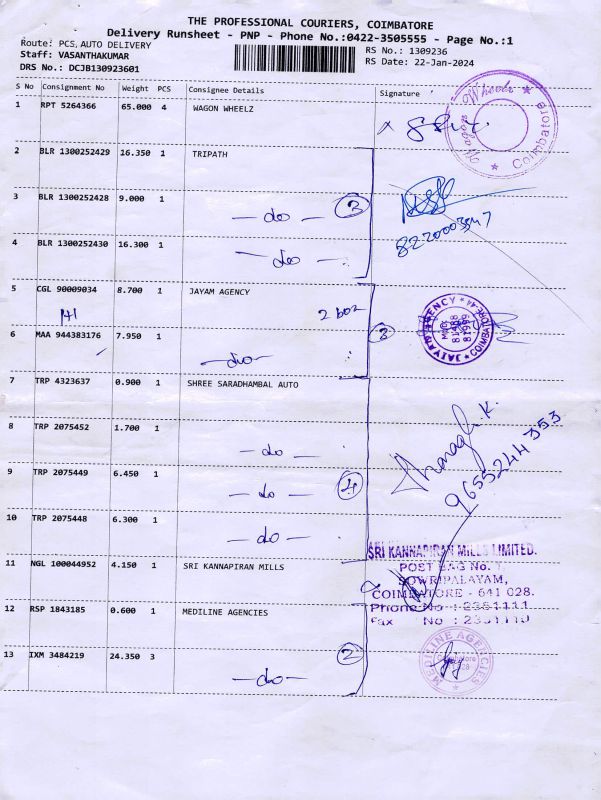 THE PROFESSIONAL COURIERS, COIMBATORE
Delivery Runsheet - PNP - Phone No.:0422-3505555 - Page No.:1
Route: PCS,AUTO DELIVERY
RS No.: 1309236
Staff: VASANTHAKUMAR
RS Date: 22-Jan-2024
DRS No.: DCJB130923601
S No Consignment No Weight PCS Consignee Details Signature
1 RPT 5264366 65.000 4 WAGON WHEELZ
Wagon
Coimbatore
2 BLR 1300252429 16.350 1 TRIPATH
3 BLR 1300252428 9.000 1
— do — 3
4 BLR 1300252430 16.300 1
— do —
5 CGL 90009034 8.700 1 JAYAM AGENCY
2 box
JAYAM AGENCY COIMBATORE-44
6 MAA 944383176 7.950 1 2
— do —
7 TRP 4323637 0.900 1 SHREE SARADHAMBAL AUTO
8 TRP 2075452 1.700 1
— do —
9655244353
9 TRP 2075449 6.450 1
— do — 4
10 TRP 2075448 6.300 1
— do —
SRI KANNAPIRAN MILLS LIMITED.
11 NGL 100044952 4.150 1 SRI KANNAPIRAN MILLS
POST BAG No.
SOWRIPALAYAM,
COIMBATORE - 641 028.
12 RSP 1843185 0.600 1 MEDILINE AGENCIES
Phone No : 2351111
Fax No : 2351110
13 IXM 3484219 24.350 3 2
— do —
MEDILINE AGENCIES